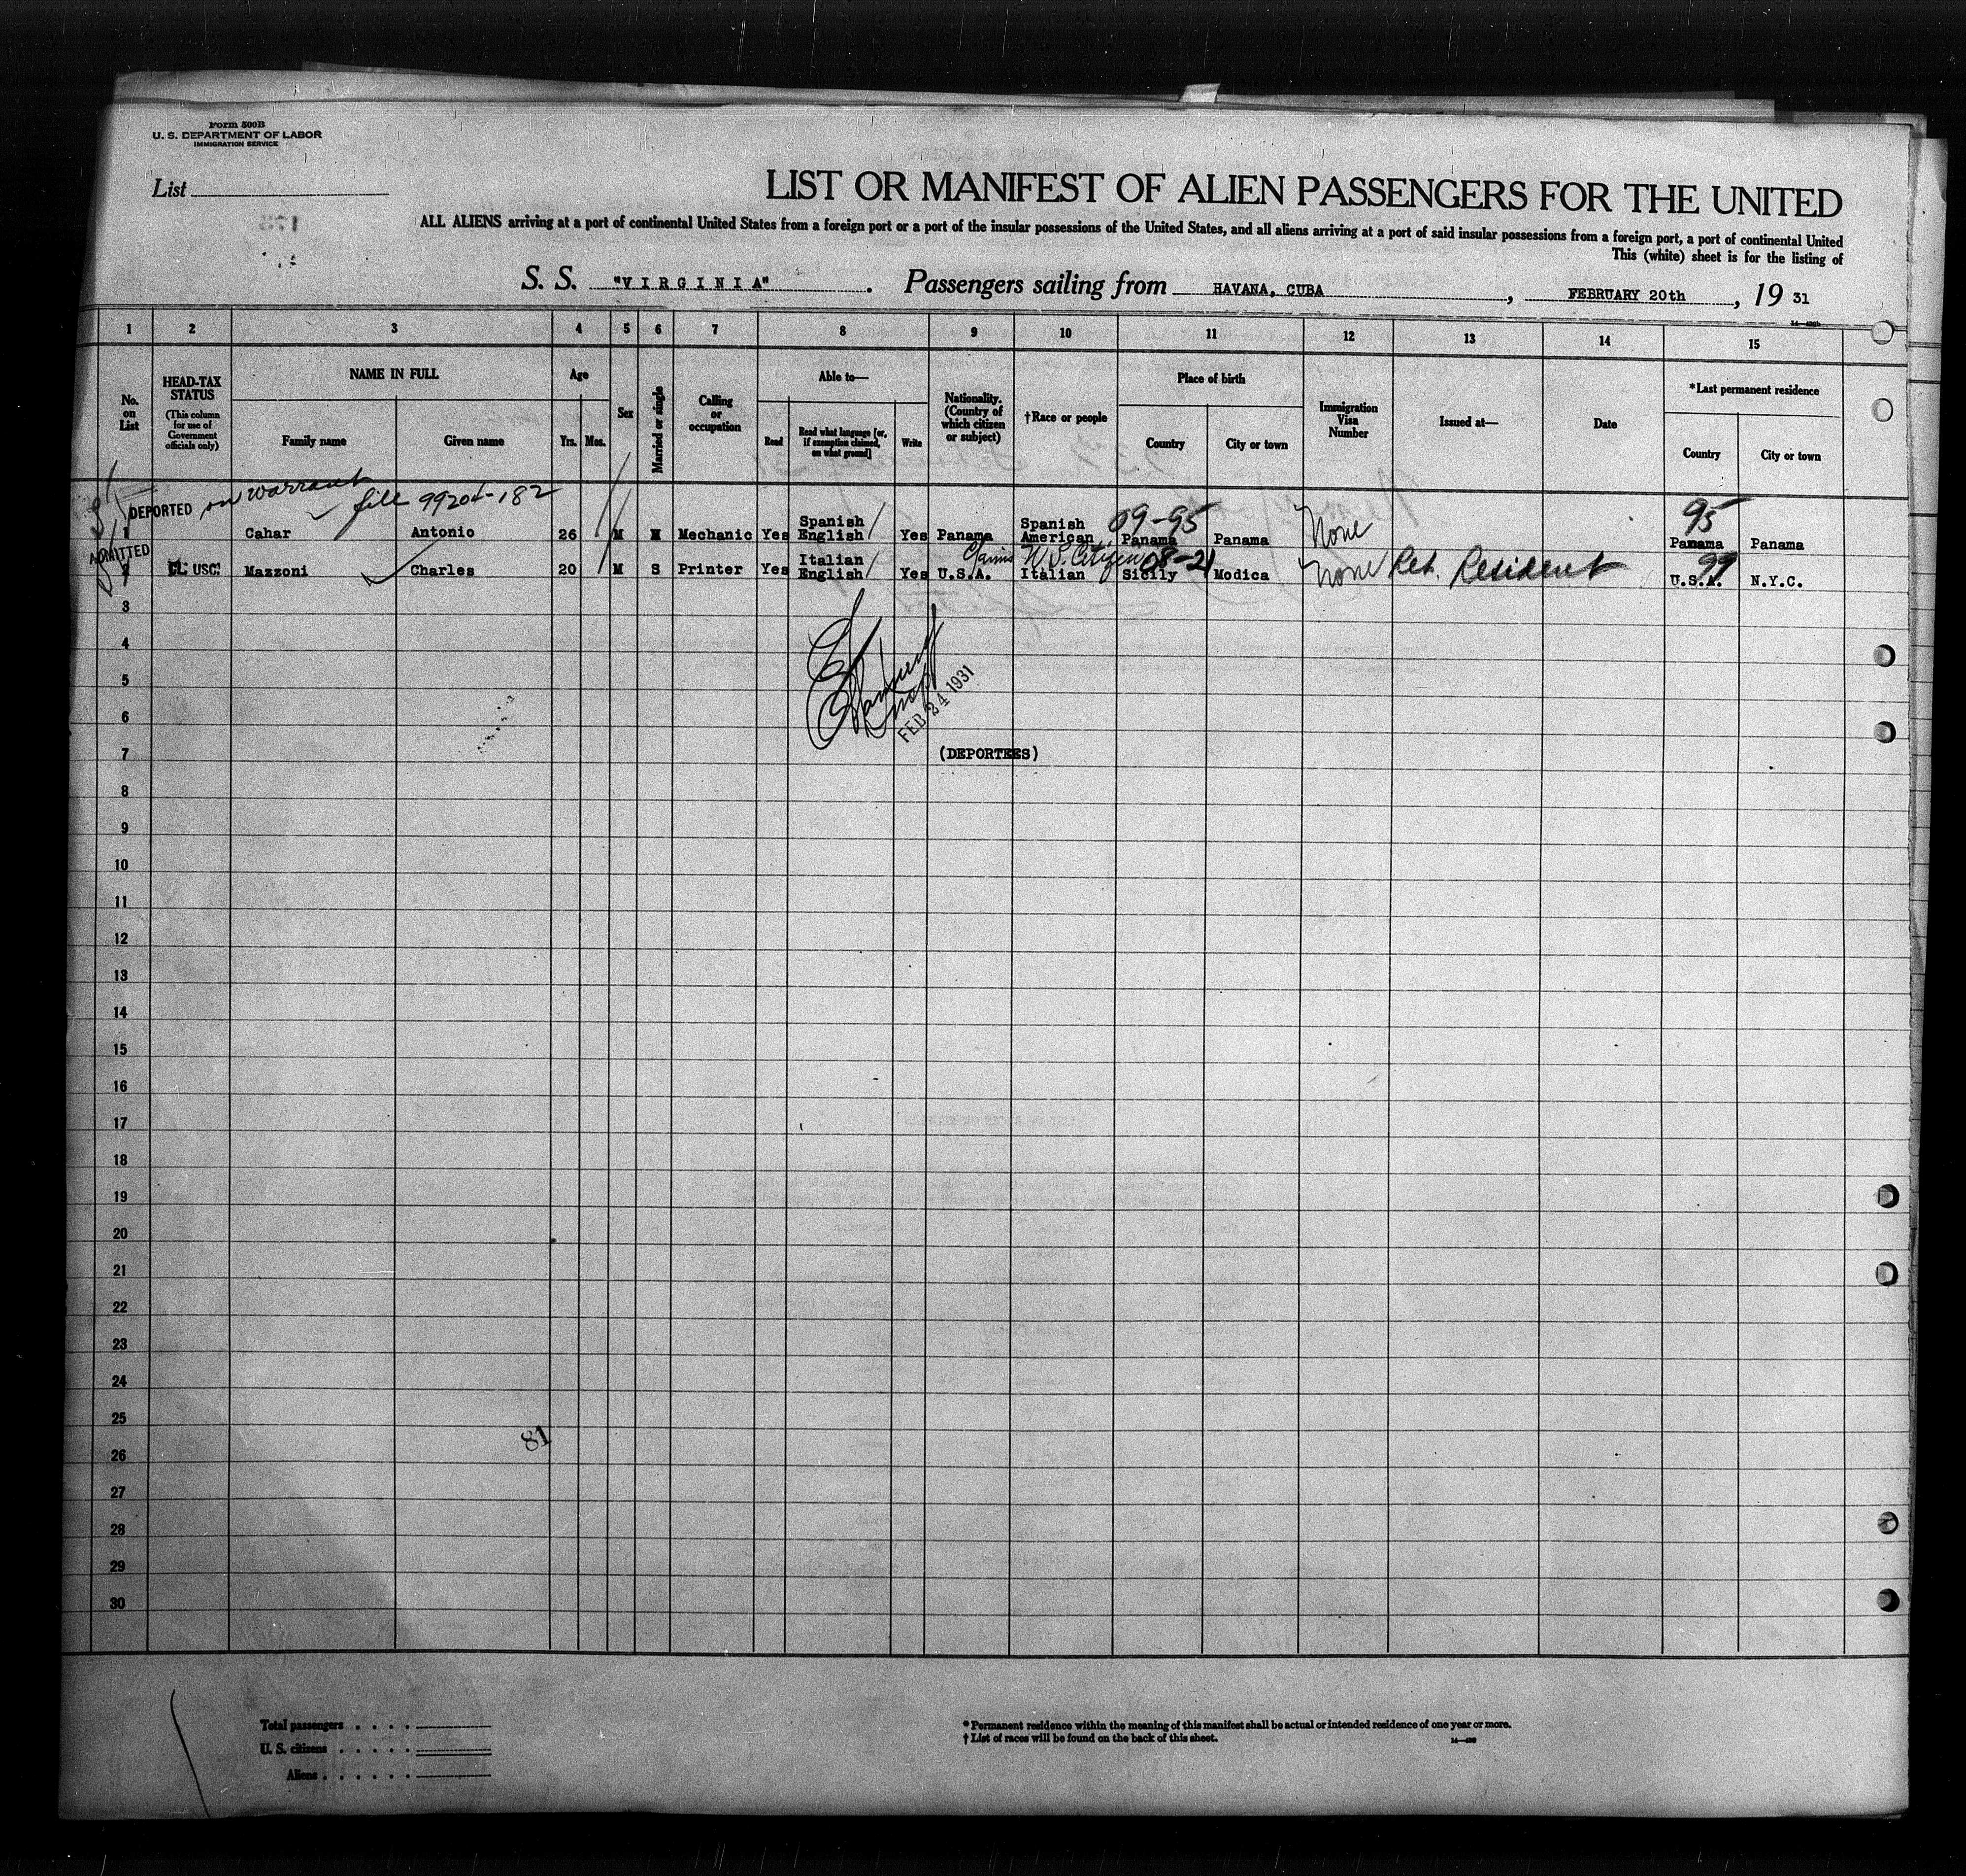 Form 500B
U. S. DEPARTMENT OF LABOR
IMMIGRATION SERVICE
List
LIST OR MANIFEST OF ALIEN PASSENGERS FOR THE UNITED
ALL ALIENS arriving at a port of continental United States from a foreign port or a port of the insular possessions of the United States, and all aliens arriving at a port of said insular possessions from a foreign port, a port of continental United
This (white) sheet is for the listing of
S. S. "VIRGINIA". Passengers sailing from HAVANA, CUBA, FEBRUARY 20th, 19 31
1 2 3 4 5 6 7 8 9 10 11 12 13 14 15
No. on List
HEAD-TAX STATUS
(This column for use of Government officials only)
NAME IN FULL
Family name Given name
Age
Yrs. Mos.
Sex
Married or single
Calling or occupation
Able to—
Read
Read what language [or, if exemption claimed, on what ground]
Write
Nationality. (Country of which citizen or subject)
†Race or people
Place of birth
Country City or town
Immigration Visa Number
Issued at—
Date
*Last permanent residence
Country City or town
DEPORTED on warrant file 99204-182
1 Cahar Antonio 26 M M Mechanic Yes Spanish English Yes Panama Spanish American 09-95 Panama Panama None 95 Panama Panama
ADMITTED
Claims U.S. Citizen
2 CL. USC. Mazzoni Charles 20 M S Printer Yes Italian English Yes U.S.A. Italian 08-21 Sicily Modica None Ret. Resident 99 U.S.A. N.Y.C.
3
4
5
6
FEB 24 1931
7 (DEPORTEES)
8
9
10
11
12
13
14
15
16
17
18
19
20
21
22
23
24
25
81
26
27
28
29
30
Total passengers
U. S. citizens
Aliens
* Permanent residence within the meaning of this manifest shall be actual or intended residence of one year or more.
† List of races will be found on the back of this sheet.